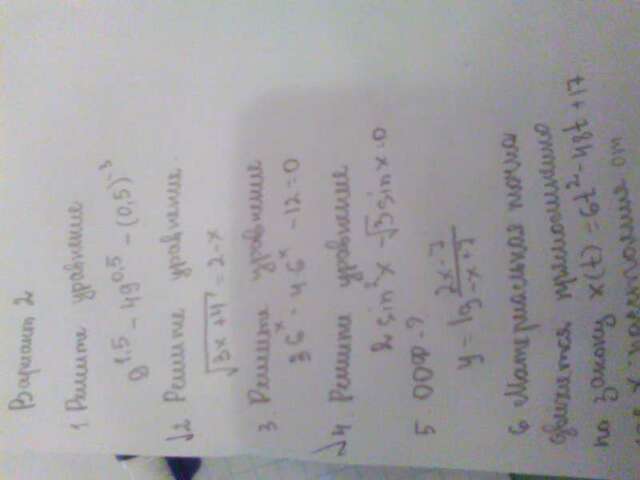 Вариант 2
1 Решите уравнение
9^1,5 - 49^0,5 - (0,5)^-3
√2 Решите уравнение.
√3x+4 = 2-x
3. Решите уравнение
36^x - 4·6^x - 12 = 0
√4. Решите уравнение
2 sin²x - √3 sin x = 0
5 ООФ-?
y = lg (2x-7)/(-x+7)
6 Материальная точка
движется прямолинейно
по закону x(t) = 6t² - 48t + 17